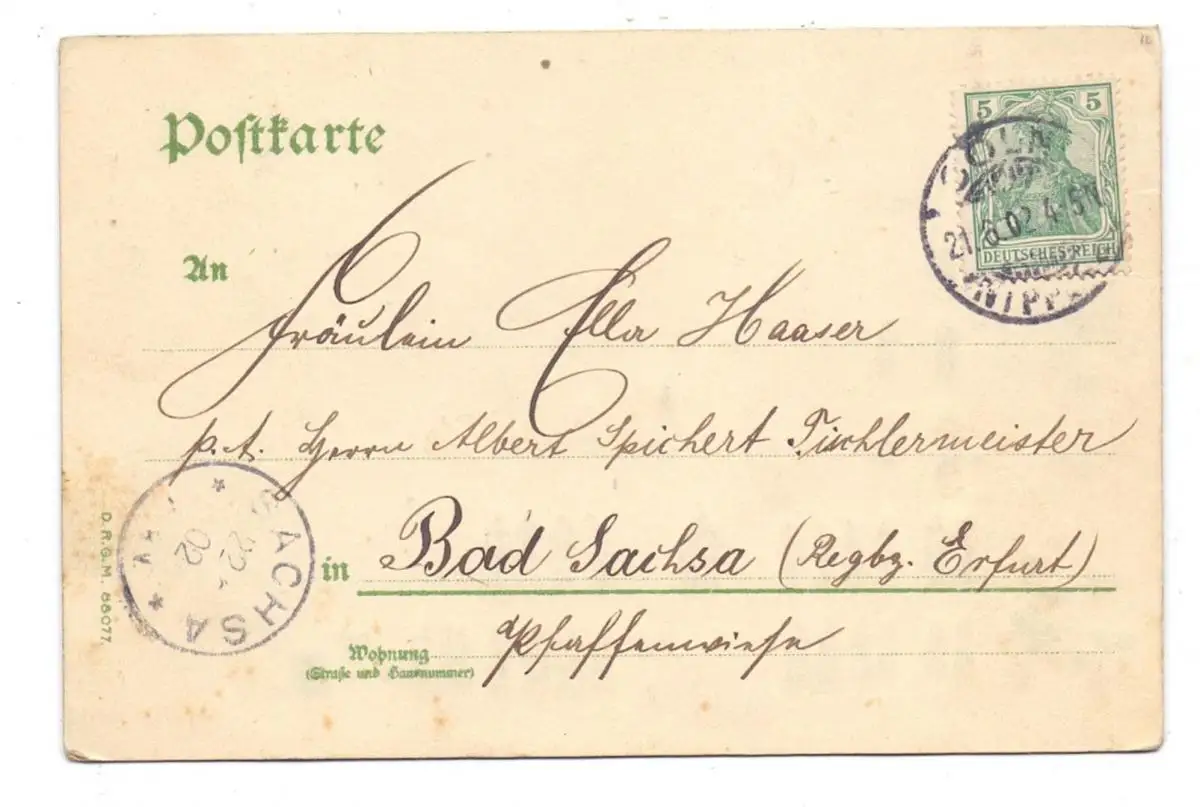 Postkarte
5 5
DEUTSCHES REICH
CÖLN
21.6.02.4-5N
NIPPES
An
Fräulein Ella Haaser
p.A. Herrn Albert Spichert Tischlermeister
in Bad Sachsa (Regbz. Erfurt)
Wohnung
(Straße und Hausnummer)
Pfaffenwiese
SACHSA
22
02
D.R.G.M. 88077.